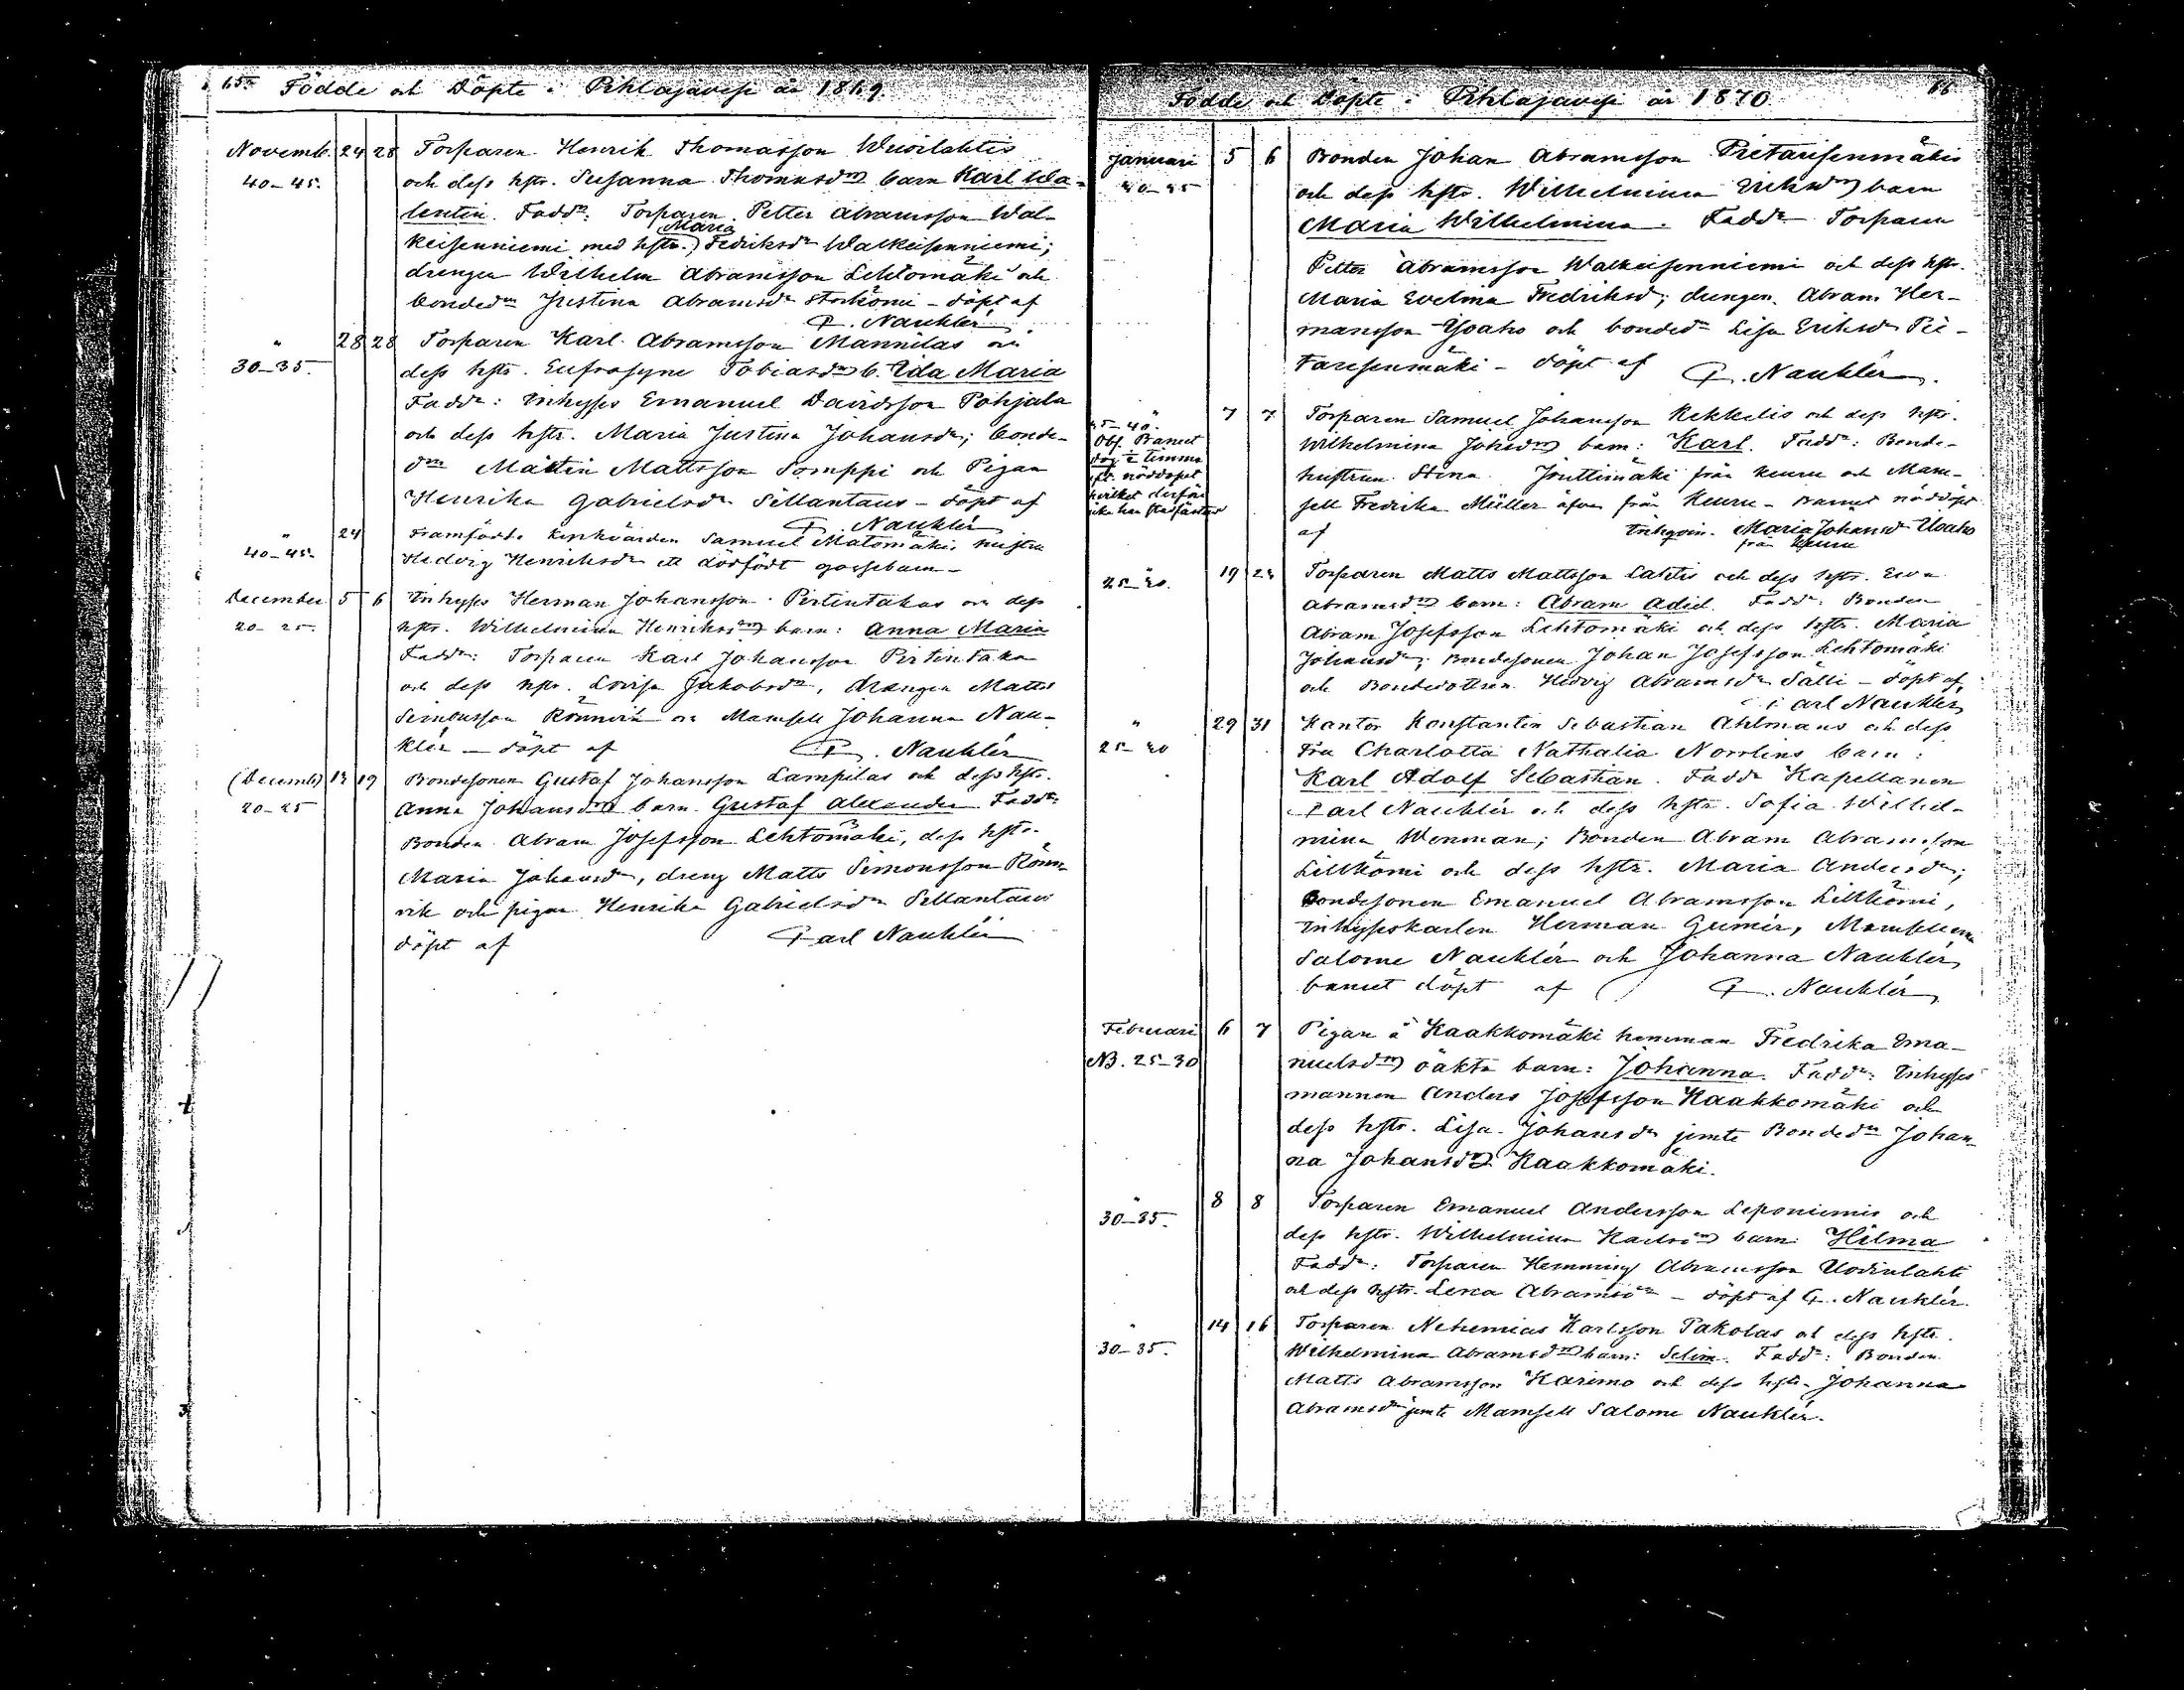 65. Födde och Döpte i Pihlajavesi år 1869.
Novemb. 24 28 Torparen Henrik Thomasson Wuorilahtis
40-45. och dess hstr. Susanna Thomasdr barn Karl Wa-
lentin. Faddr: Torparen Petter Abramsson Wal-
Maria
keisenniemi med hstr. Fedriksdr Walkeisenniemi;
drengen Wilhelm Abramsson Lehtomäki och
bondedr Justina Abramsdr Storkömi - döpt af
C. Nauklér.
" 28 28 Torparen Karl Abramsson Mannilas och
30-35. dess hstr. Eufrosyne Tobiasdr b. Ida Maria
Faddr: Inhyses Emanuel Davidsson Pohjala
och dess hstr. Maria Justina Johansdr; bonde-
Mattsson Somppi och Pigan
Henrika Gabrielsdr Sillantaus - döpt af
C. Nauklér
" 24 Framfödde Samuel Matomäkis hustru
40-45. Hedvig Henriksdr ett dödfödt gossebarn -
December 5 6 Inhyses Herman Johansson Pirtintakas och dess
20-25. hstr. Wilhelmina Henriksdr barn: Anna Maria
Faddr: Torparen Karl Johansson Pirtintaka
och dess hstr. Lovisa Jakobsdr, drängen Matts
Simonsson Rönnvik och Mamsell Johanna Nau-
klér - döpt af C. Nauklér
(Decemb) 13 19 Bondesonen Gustaf Johansson Lampilas och dess hstr.
20-25 Anna Johansdr barn Gustaf Alexander Faddr:
Bonden Abram Josefsson Lehtomäki, dess hstr.
Maria Johansdr, dreng Matts Simonsson Rönn-
vik och pigan Henrika Gabrielsdr Sillantaus
döpt af Carl Nauklér
Födde och Döpte i Pihlajavesi år 1870. 66
Januari 5 6 Bonden Johan Abramsson Pietarisenmäkis
40-45 och dess hstr. Wilhelmina Eriksdr barn
Maria Wilhelmina. Faddr Torparen
Petter Abramsson Walkeisenniemi och dess hstr.
Maria Evelina Fredriksdr; drengen Abram Her-
mansson Ysaho och bondedr Lisa Eriksdr Pie-
tarisenmäki - döpt af C. Nauklér.
" 7 7 Torparen Samuel Johansson Kekkelis och dess hstr.
35-40. Wilhelmina Johsdr barn: Karl. Faddr: Bonde-
Obs. Barnet
dog ½ timma
eft. nöddopet
hvilket derföre
icke har stadfästats
hustrun Stina Jouttimäki från Keuru och Mam-
sell Fredrika Müller äfven från Keuru - Barnet nöddöpt
af Inhqvin. Maria Johansdr Uoaho
från Keuru
" 19 23 Torparen Matts Mattsson Lahtis och dess hstr. Eva
25-30. Abramsdr barn: Abram Adiel. Faddr: Bonden
Abram Josefsson Lehtomäki och dess hstr. Maria
Johansdr; Bondesonen Johan Josefsson Lehtomäki
och Bondedottren Hedvig Abramsdr Sälli - döpt af
Carl Nauklér
" 29 31 Kantor Konstantin Sebastian Ahlmans och dess
25-30 Fru Charlotta Nathalia Norrlens barn:
Karl Adolf Sebastian. Faddr Kapellanen
Carl Nauklér och dess hstr. Sofia Wilhel-
mina Wenman; Bonden Abram Abramsson
Lillkömi och dess hstr. Maria Andersdr;
Bondesonen Emanuel Abramsson Lillkömi,
Inhyseskarlen Herman Gumér, Mamsellerna
Salome Nauklér och Johanna Nauklér,
barnet döpt af C. Nauklér
Februari 6 7 Pigan å Kaakkomäki hemman Fredrika Ema-
NB. 25-30 nuelsdr oäkta barn: Johanna. Faddr: Inhyses
mannen Anders Josefsson Kaakkomäki och
dess hstr. Lisa Johansdr jemte Bondedr Johan-
na Johansdr Kaakkomäki.
" 8 8 Torparen Emanuel Andersson Leponiemis och
30-35. dess hstr. Wilhelmina Karlsdr barn: Hilma
Faddr: Torparen Hemming Abramsson Uodinlahti
och dess hstr. Lena Abramsdr - döpt af C. Nauklér.
" 14 16 Torparen Nehemias Karlsson Pakolas och dess hstr.
30-35. Wilhelmina Abramsdr barn: Selim. Faddr: Bonden
Matts Abramsson Karimo och dess hstr. Johanna
Abramsdr jemte Mamsell Salome Nauklér.